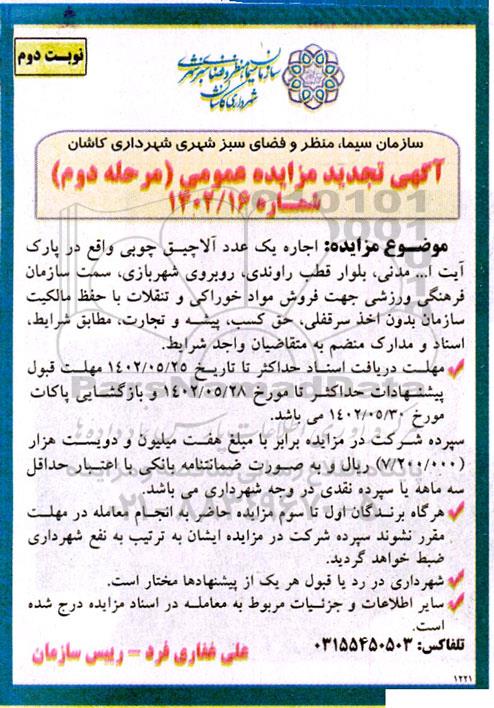 نوبت دوم
سازمان سیما، منظر و فضای سبز شهری
شهرداری کاشان
سازمان سیما، منظر و فضای سبز شهری شهرداری کاشان
آگهی تجدید مزایده عمومی (مرحله دوم)
شماره ۱۴۰۲/۱۶
موضوع مزایده: اجاره یک عدد آلاچیق چوبی واقع در پارک
آیت ا... مدنی، بلوار قطب راوندی، روبروی شهربازی، سمت سازمان
فرهنگی ورزشی جهت فروش مواد خوراکی و تنقلات با حفظ مالکیت
سازمان بدون اخذ سرقفلی، حق کسب، پیشه و تجارت، مطابق شرایط،
اسناد و مدارک منضم به متقاضیان واجد شرایط.
مهلت دریافت اسناد حداکثر تا تاریخ ۱۴۰۲/۰۵/۲۵ مهلت قبول
پیشنهادات حداکثر تا مورخ ۱۴۰۲/۰۵/۲۸ و بازگشایی پاکات
مورخ ۱۴۰۲/۰۵/۳۰ می باشد.
سپرده شرکت در مزایده برابر با مبلغ هفت میلیون و دویست هزار
(۷/۲۰۰/۰۰۰) ریال و به صورت ضمانتنامه بانکی با اعتبار حداقل
سه ماهه یا سپرده نقدی در وجه شهرداری می باشد.
هرگاه برندگان اول تا سوم مزایده حاضر به انجام معامله در مهلت
مقرر نشوند سپرده شرکت در مزایده ایشان به ترتیب به نفع شهرداری
ضبط خواهد گردید.
شهرداری در رد یا قبول هر یک از پیشنهادها مختار است.
سایر اطلاعات و جزئیات مربوط به معامله در اسناد مزایده درج شده
است.
تلفاکس: ۰۳۱۵۵۴۵۰۵۰۳
علی غفاری فرد – رییس سازمان
۱۲۲۱
ParsNamadData